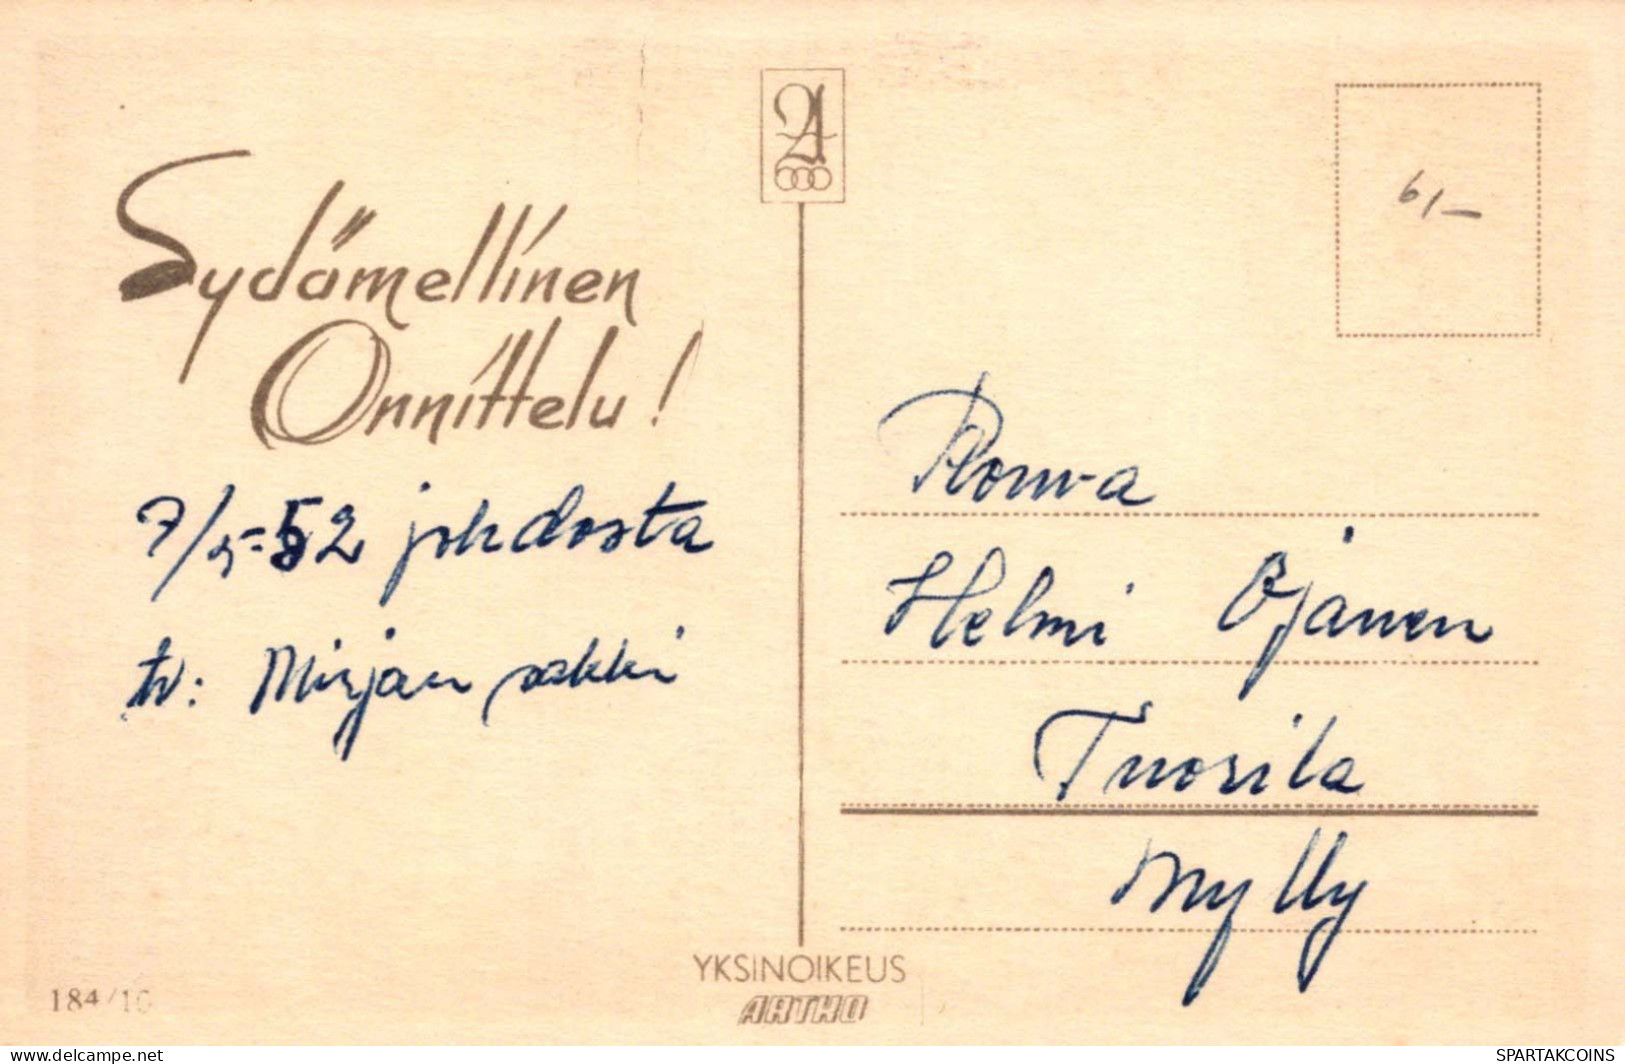 Sydämellinen
Onnittelu!
7/5-52 johdosta
tv: Mirjan sakki
6/-
Rouva
Helmi Ojanen
Tuorila
Mylly
YKSINOIKEUS
ARTKO
184/10
www.delcampe.net
SPARTAKCOINS